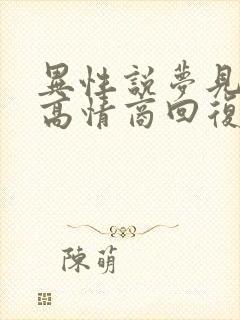 異性說夢見
高情商回復
陳萌